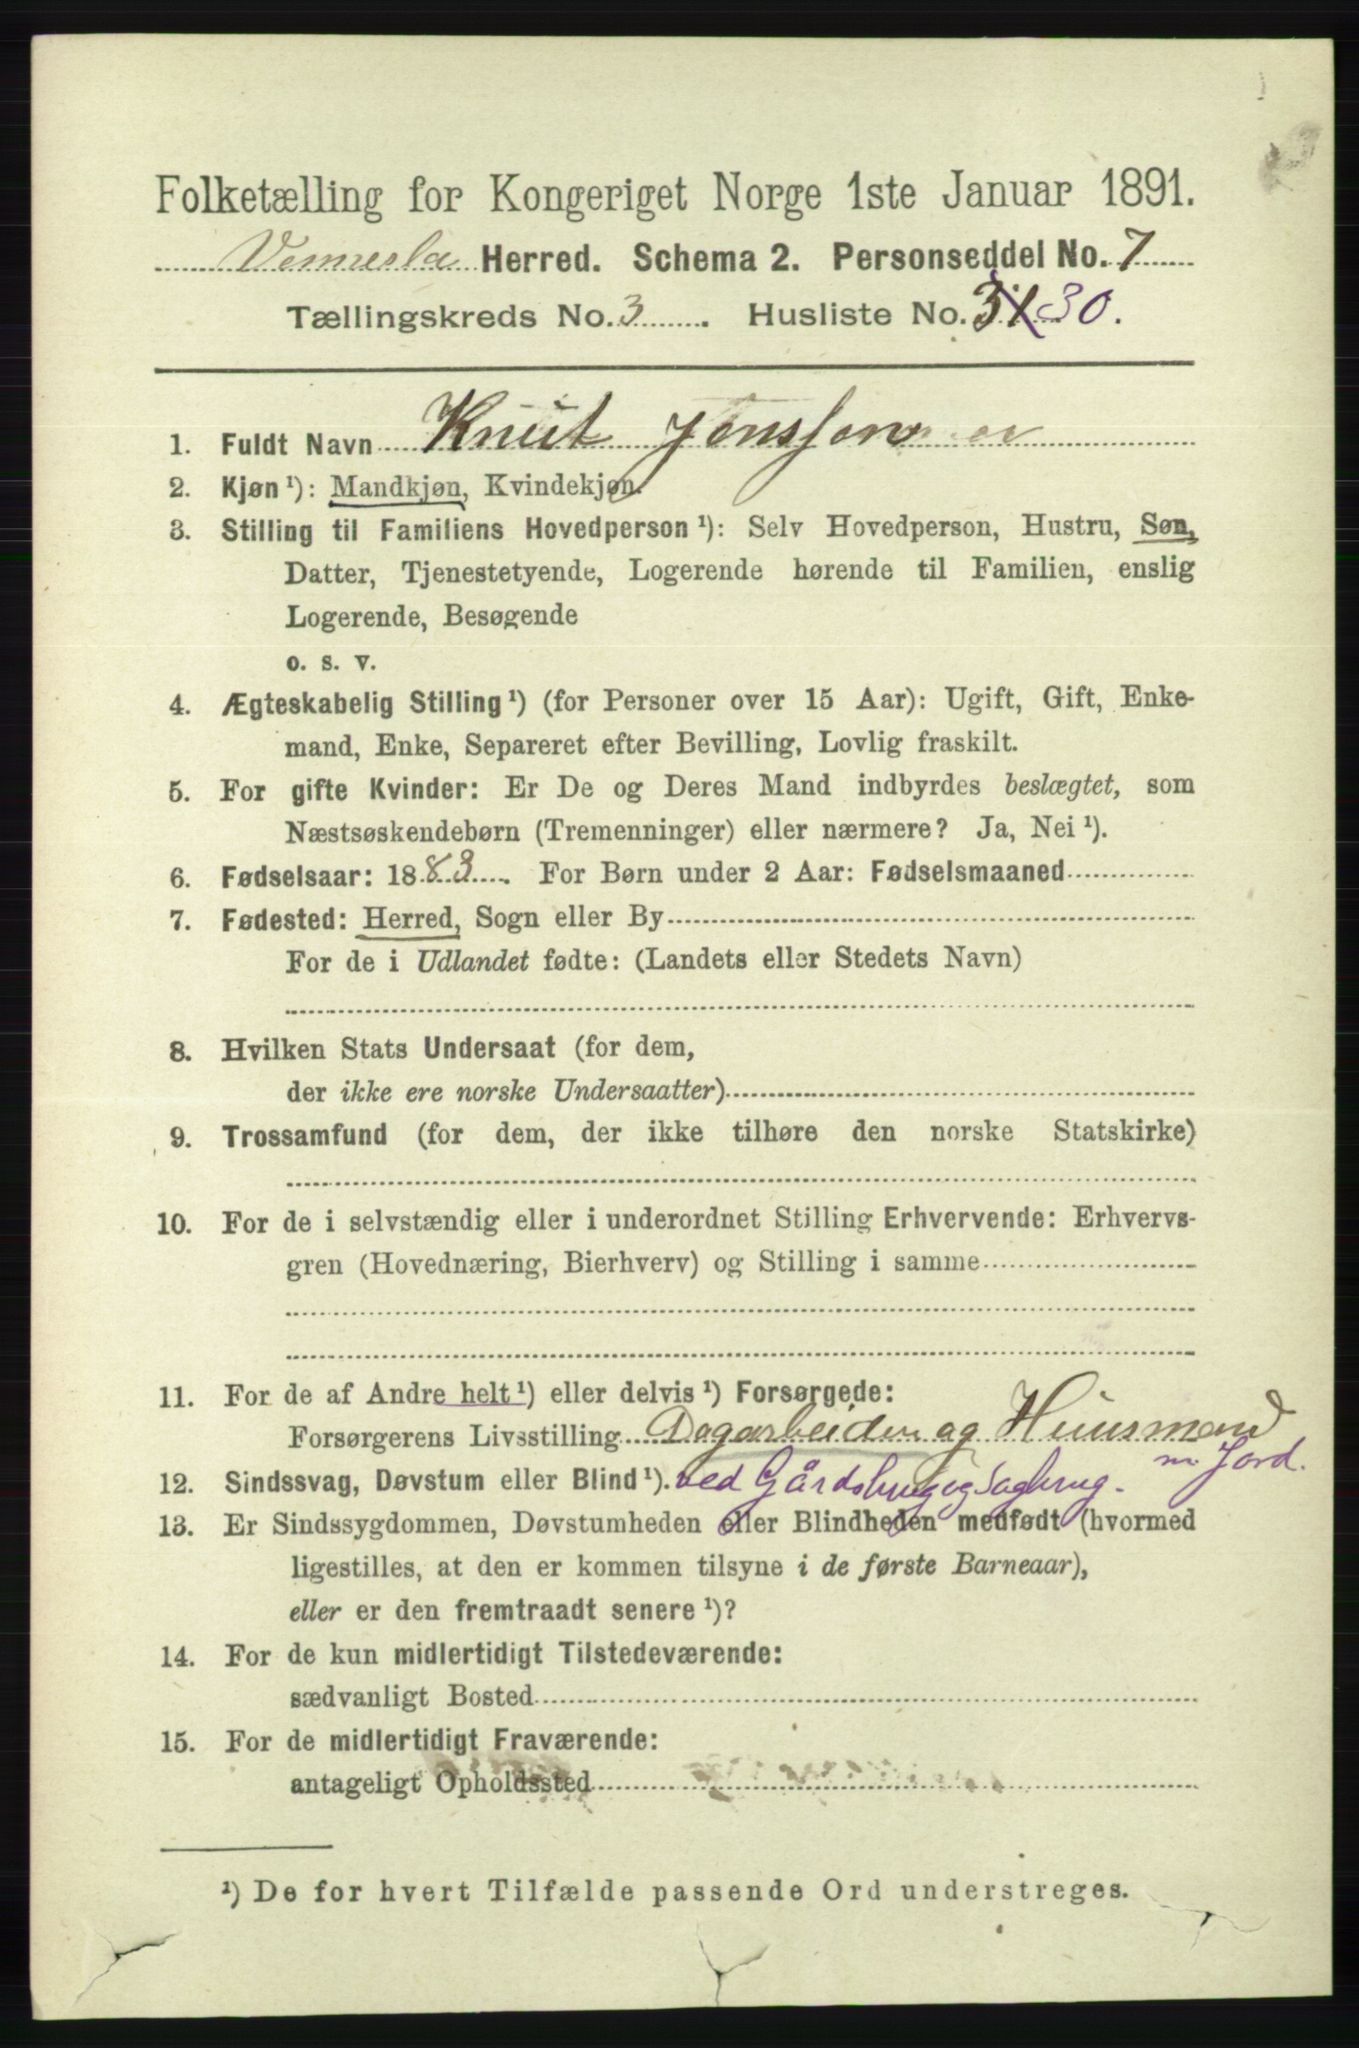 Folketælling for Kongeriget Norge 1ste Januar 1891.
Vennesla Herred. Schema 2. Personseddel No. 7
Tællingskreds No. 3. Husliste No. 31 30.
1. Fuldt Navn Knut Jensson
2. Kjøn¹): Mandkjøn, Kvindekjøn.
3. Stilling til Familiens Hovedperson¹): Selv Hovedperson, Hustru, Søn,
Datter, Tjenestetyende, Logerende hørende til Familien, enslig
Logerende, Besøgende
o. s. v.
4. Ægteskabelig Stilling¹) (for Personer over 15 Aar): Ugift, Gift, Enke-
mand, Enke, Separeret efter Bevilling, Lovlig fraskilt.
5. For gifte Kvinder: Er De og Deres Mand indbyrdes beslægtet, som
Næstsøskendebørn (Tremenninger) eller nærmere? Ja, Nei¹).
6. Fødselsaar: 1883. For Børn under 2 Aar: Fødselsmaaned
7. Fødested: Herred, Sogn eller By
For de i Udlandet fødte: (Landets eller Stedets Navn)
8. Hvilken Stats Undersaat (for dem,
der ikke ere norske Undersaatter)
9. Trossamfund (for dem, der ikke tilhøre den norske Statskirke)
10. For de i selvstændig eller i underordnet Stilling Erhvervende: Erhvervs-
gren (Hovednæring, Bierhverv) og Stilling i samme
11. For de af Andre helt¹) eller delvis¹) Forsørgede:
Forsørgerens Livsstilling Dagarbeider og Huusmand
m. Jord.
12. Sindssvag, Døvstum eller Blind¹). ved Gårdsbrug og Sagbrug.
13. Er Sindssygdommen, Døvstumheden eller Blindheden medfødt (hvormed
ligestilles, at den er kommen tilsyne i de første Barneaar),
eller er den fremtraadt senere¹)?
14. For de kun midlertidigt Tilstedeværende:
sædvanligt Bosted
15. For de midlertidigt Fraværende:
antageligt Opholdssted
¹) De for hvert Tilfælde passende Ord understreges.